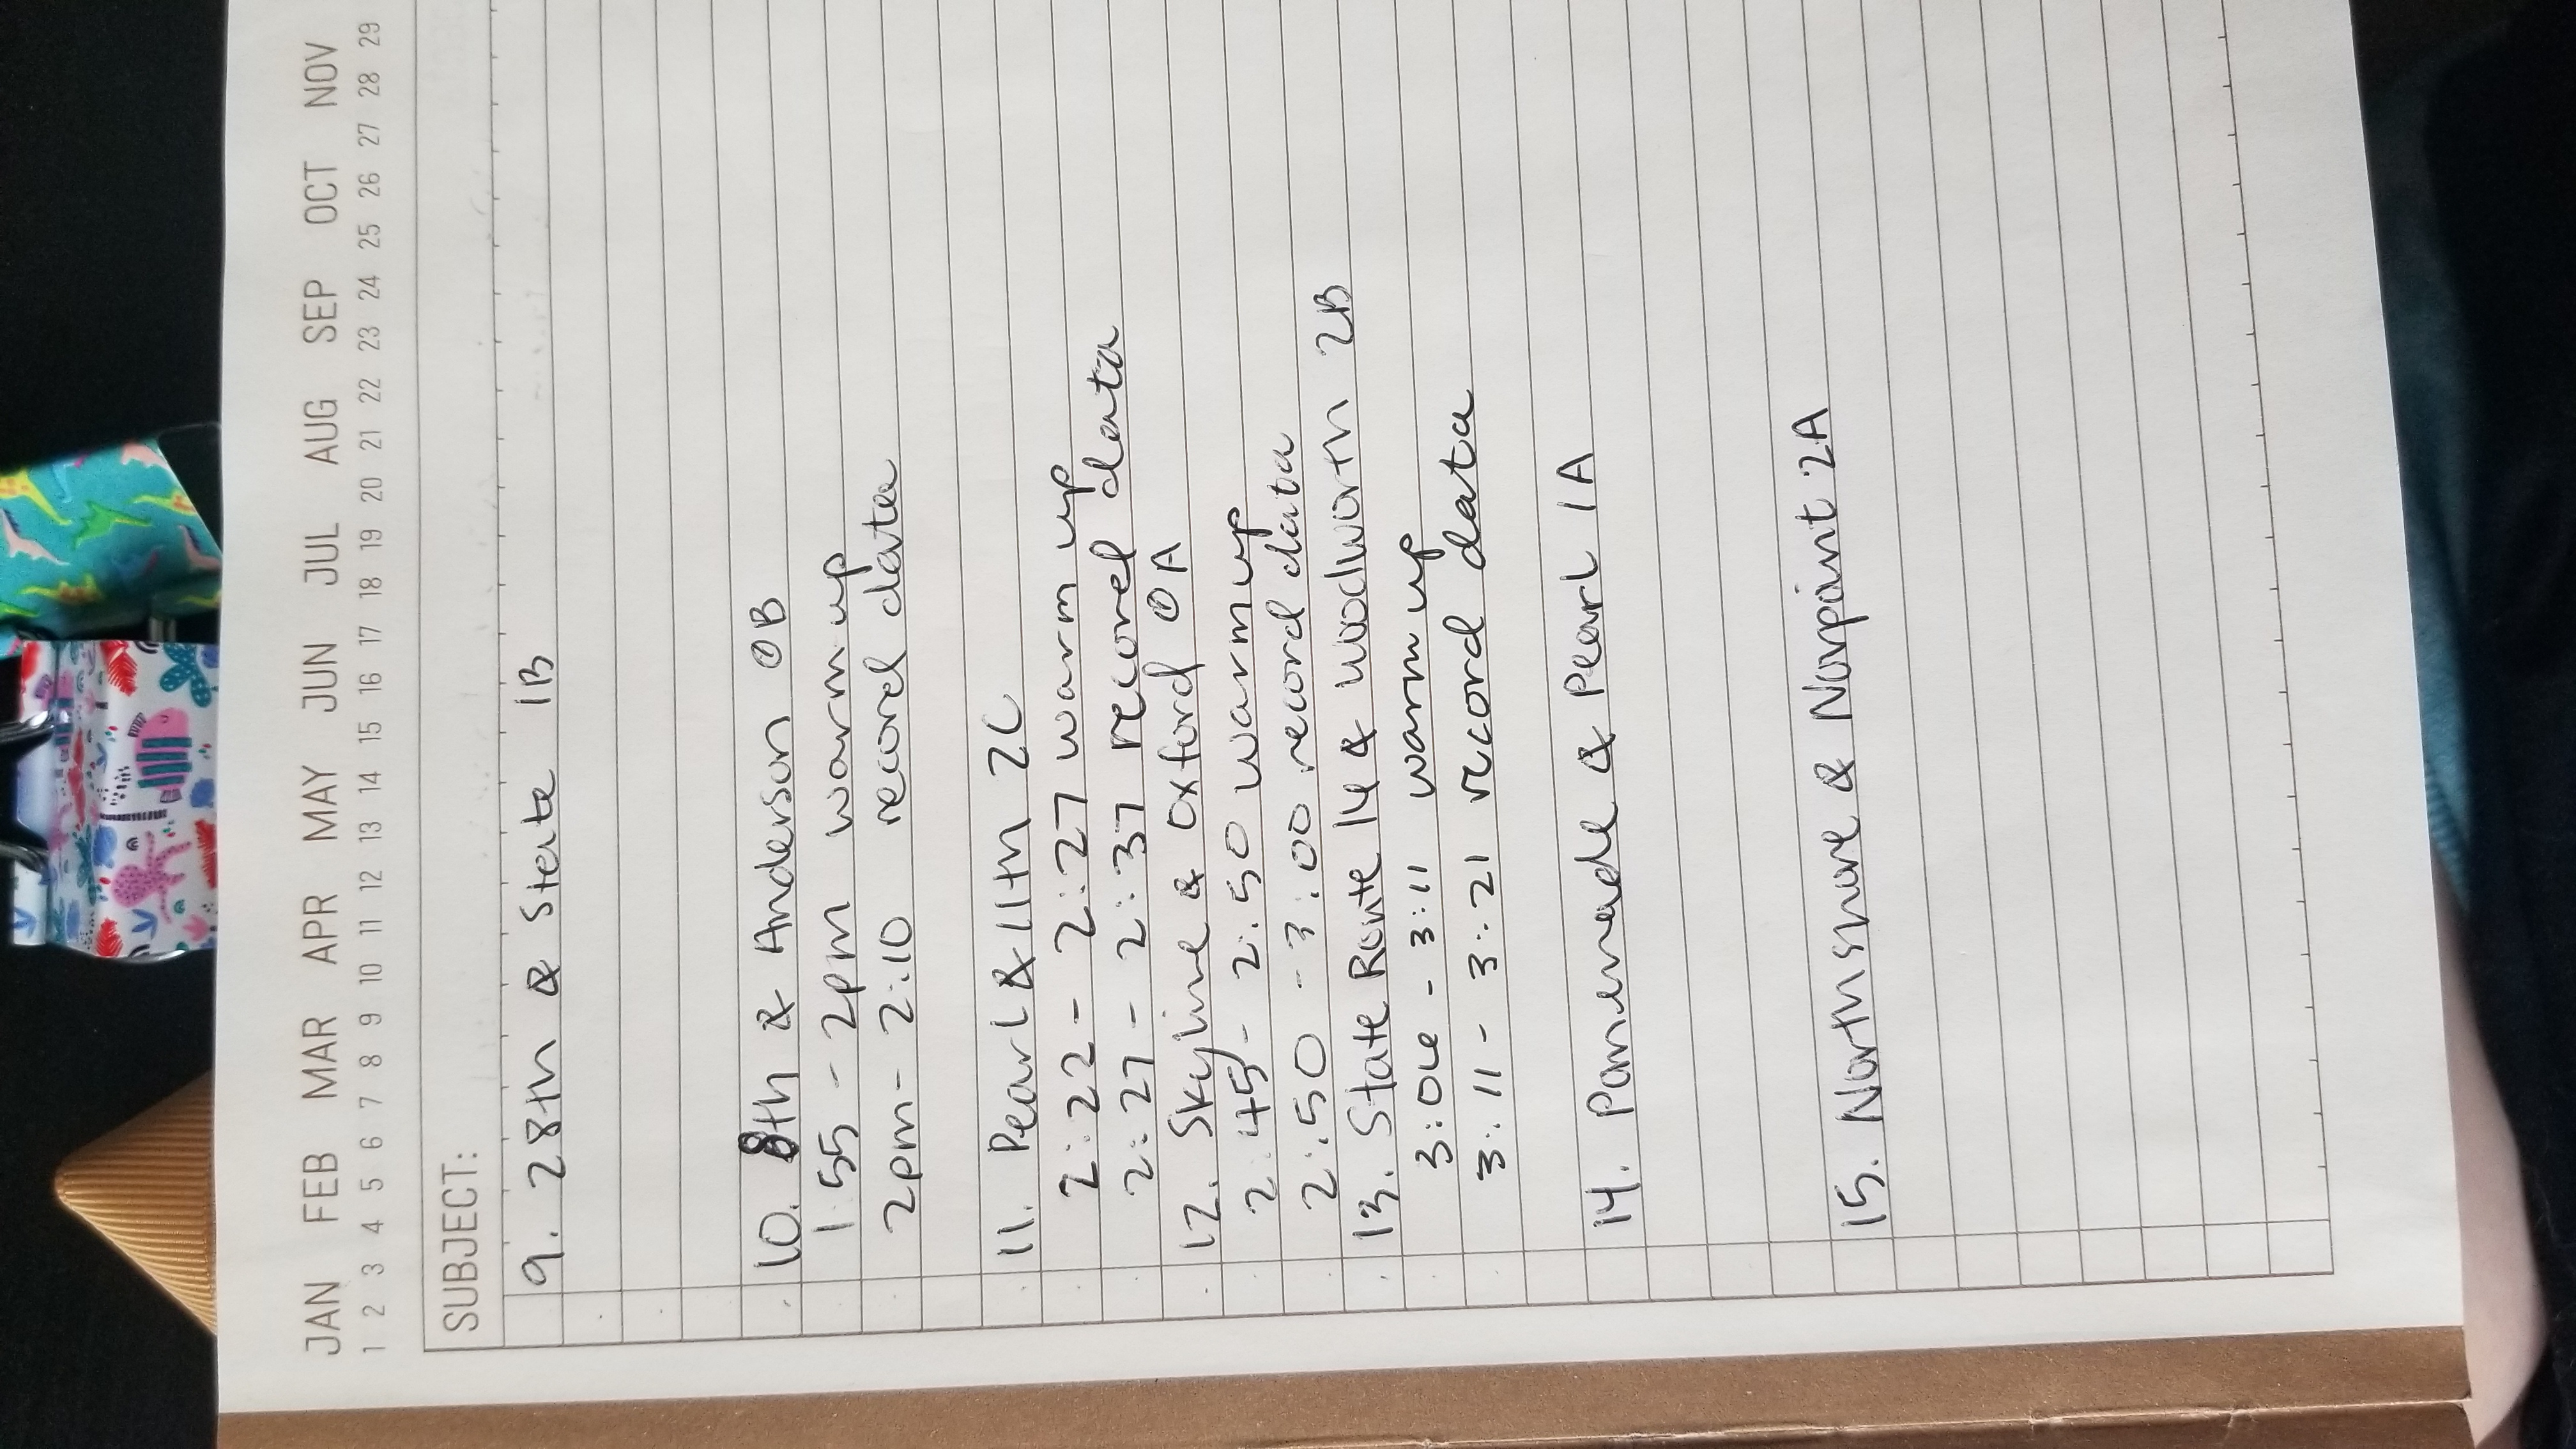 JAN FEB MAR APR MAY JUN JUL AUG SEP OCT NOV
1 2 3 4 5 6 7 8 9 10 11 12 13 14 15 16 17 18 19 20 21 22 23 24 25 26 27 28 29
SUBJECT:
9. 28th & State 1B
10. 8th & Anderson 0B
1:55 - 2pm warm up
2pm - 2:10 record data
11. Pearl & 11th 2C
2:22 - 2:27 warm up
2:27 - 2:37 record data
12. Skyline & Oxford 0A
2:45 - 2:50 warm up
2:50 - 3:00 record data
13. State Route 14 & Woodworth 2B
3:06 - 3:11 warm up
3:11 - 3:21 record data
14. Pomenade & Pearl 1A
15. Northshore & Norpoint 2A